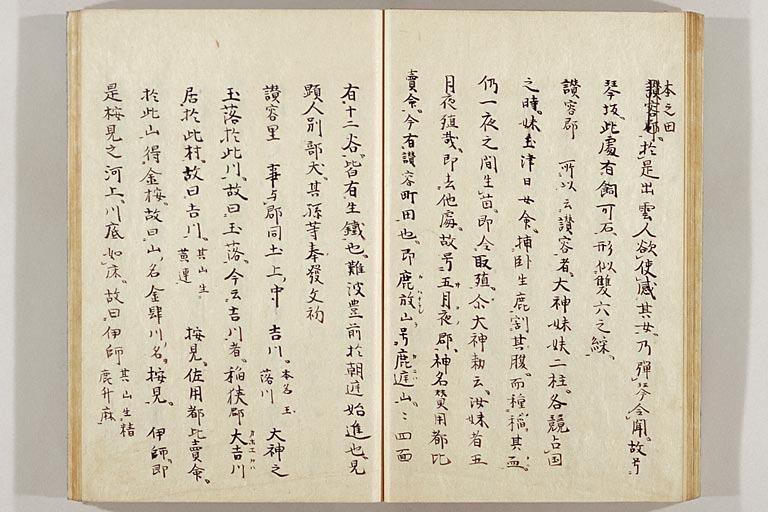 本之田
讃容郡於是出雲人欲使感其女乃弾琴令聞故号
琴坂此處有銅可石形似雙六之綵
讃容郡 所以云讃容者大神妹妋二柱各競占国
之時妹玉津日女命捕卧生鹿割其腹而種稲其血
仍一夜之間生苗即令取殖尒大神勅云汝妹者五
月夜殖哉即去他處故号五月夜郡神名賛用都比
賣命今有讃容町田也即鹿放山号鹿庭山〻四面
有十二谷皆有生鐵也難波豊前於朝庭始進也見
顕人別部犬其孫等奉發文初
讃容里 事与郡同土上中 吉川 本名玉落川 大神之
玉落於此川故曰玉落今云吉川者稲狭郡大吉川
居於此村故曰吉川 其山生黄連 桉見佐用都比賣命
於此山得金桉故曰山名金肆川名桉見 伊師即
是桉見之河上川底如床故曰伊師 其山生精鹿升麻